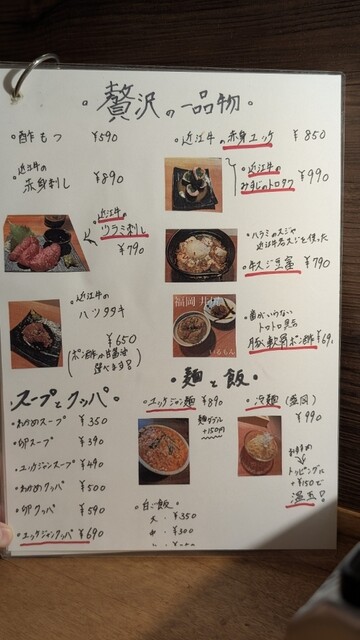 ・贅沢の一品物・
・酢もつ ¥590
・近江牛の
赤身刺し ¥890
・近江牛の
ツラミ刺し
¥790
・近江牛の
ハツタタキ
¥650
(ポン酢か甘醤油
選べます!)
・近江牛の赤身ユッケ ¥850
・近江牛の
みすじのトロタク ¥990
・ハラミのスジや
近江牛スジを使った
牛スジ豆富 ¥790
福岡 井尻
いるもん
・歯がいらない
トロトロ食感
豚軟骨ポン酢 ¥69
スープとクッパ
・わかめスープ ¥350
・卵スープ ¥390
・ユッケジャンスープ ¥490
・わかめクッパ ¥500
・卵クッパ ¥590
・ユッケジャンクッパ ¥690
・麺と飯・
・ユッケジャン麺 ¥890
麺ダブル
+150円
・冷麺(盛岡)
¥990
おすすめ
トッピング
+¥150で
温玉!
・白ご飯
大・¥350
中・¥300